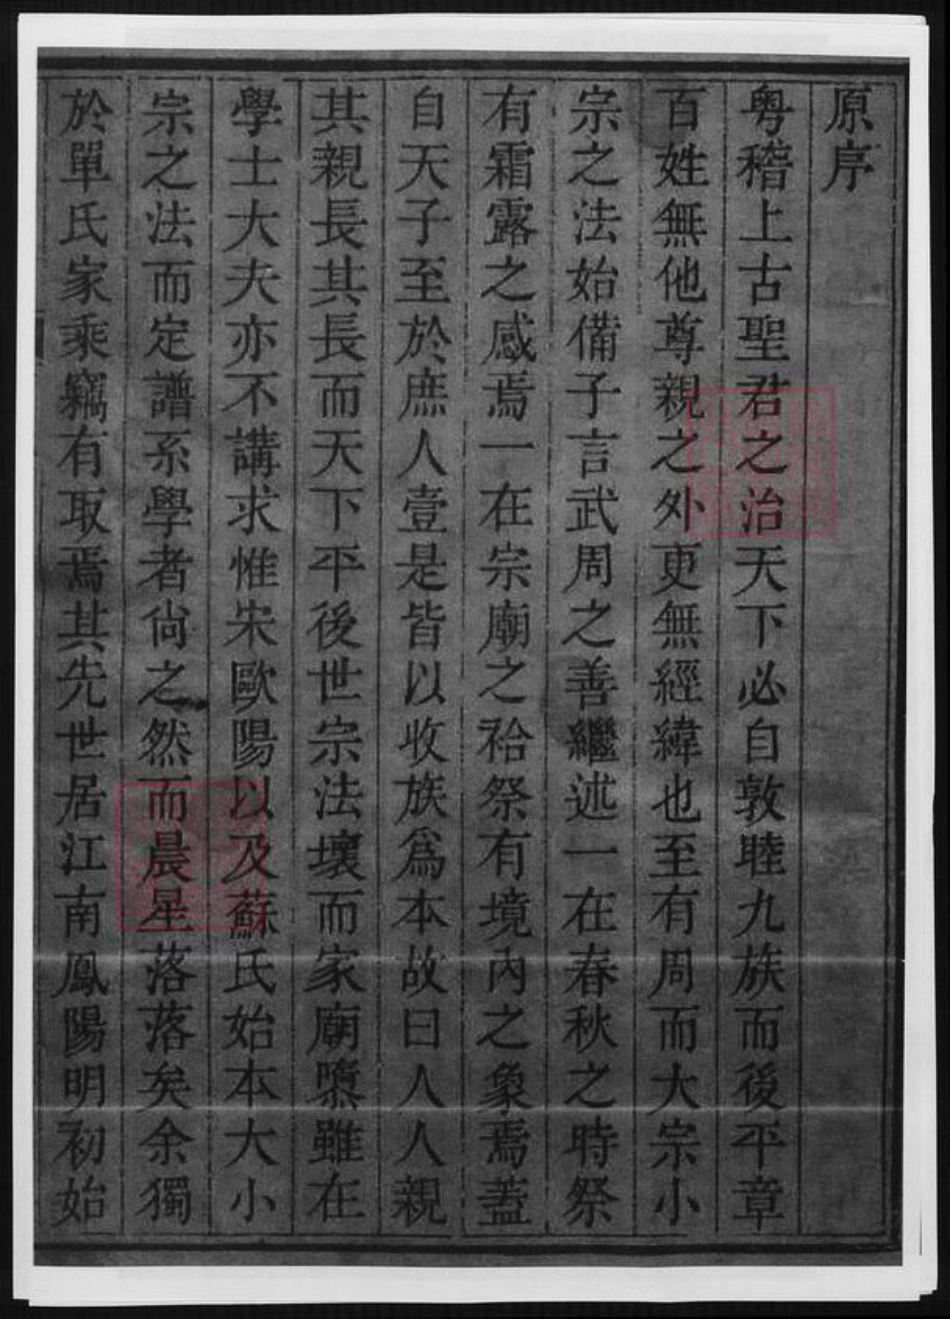 原序
粤稽上古聖君之治天下必自敦睦九族而後平章
百姓無他尊親之外更無經緯也至有周而大宗小
宗之法始備子言武周之善繼述一在春秋之時祭
有霜露之感焉一在宗廟之祫祭有境內之象焉蓋
自天子至於庶人壹是皆以收族爲本故曰人人親
其親長其長而天下平後世宗法壞而家廟隳雖在
學士大夫亦不講求惟宋歐陽以及蘇氏始本大小
宗之法而定譜系學者尙之然而晨星落落矣余獨
於單氏家乘竊有取焉其先世居江南鳳陽明初始